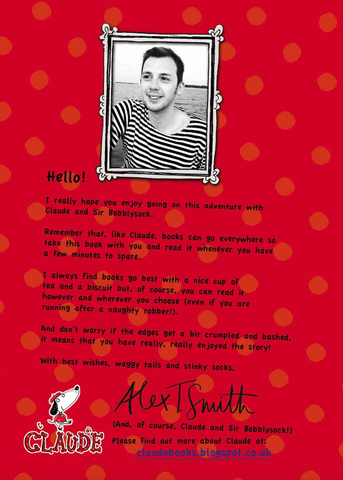 Hello!
I really hope you enjoy going on this adventure with
Claude and Sir Bobblysock.
Remember that, like Claude, books can go everywhere so
take this book with you and read it whenever you have
a few minutes to spare.
I always find books go best with a nice cup of
tea and a biscuit but, of course, you can read it
however and wherever you choose (even if you are
running after a naughty robber!).
And don't worry if the edges get a bit crumpled and bashed,
it means that you have really, really enjoyed the story!
With best wishes, waggy tails and stinky socks,
Alex T. Smith
(And, of course, Claude and Sir Bobblysock!)
CLAUDE
Please find out more about Claude at:
claudebooks.blogspot.co.uk